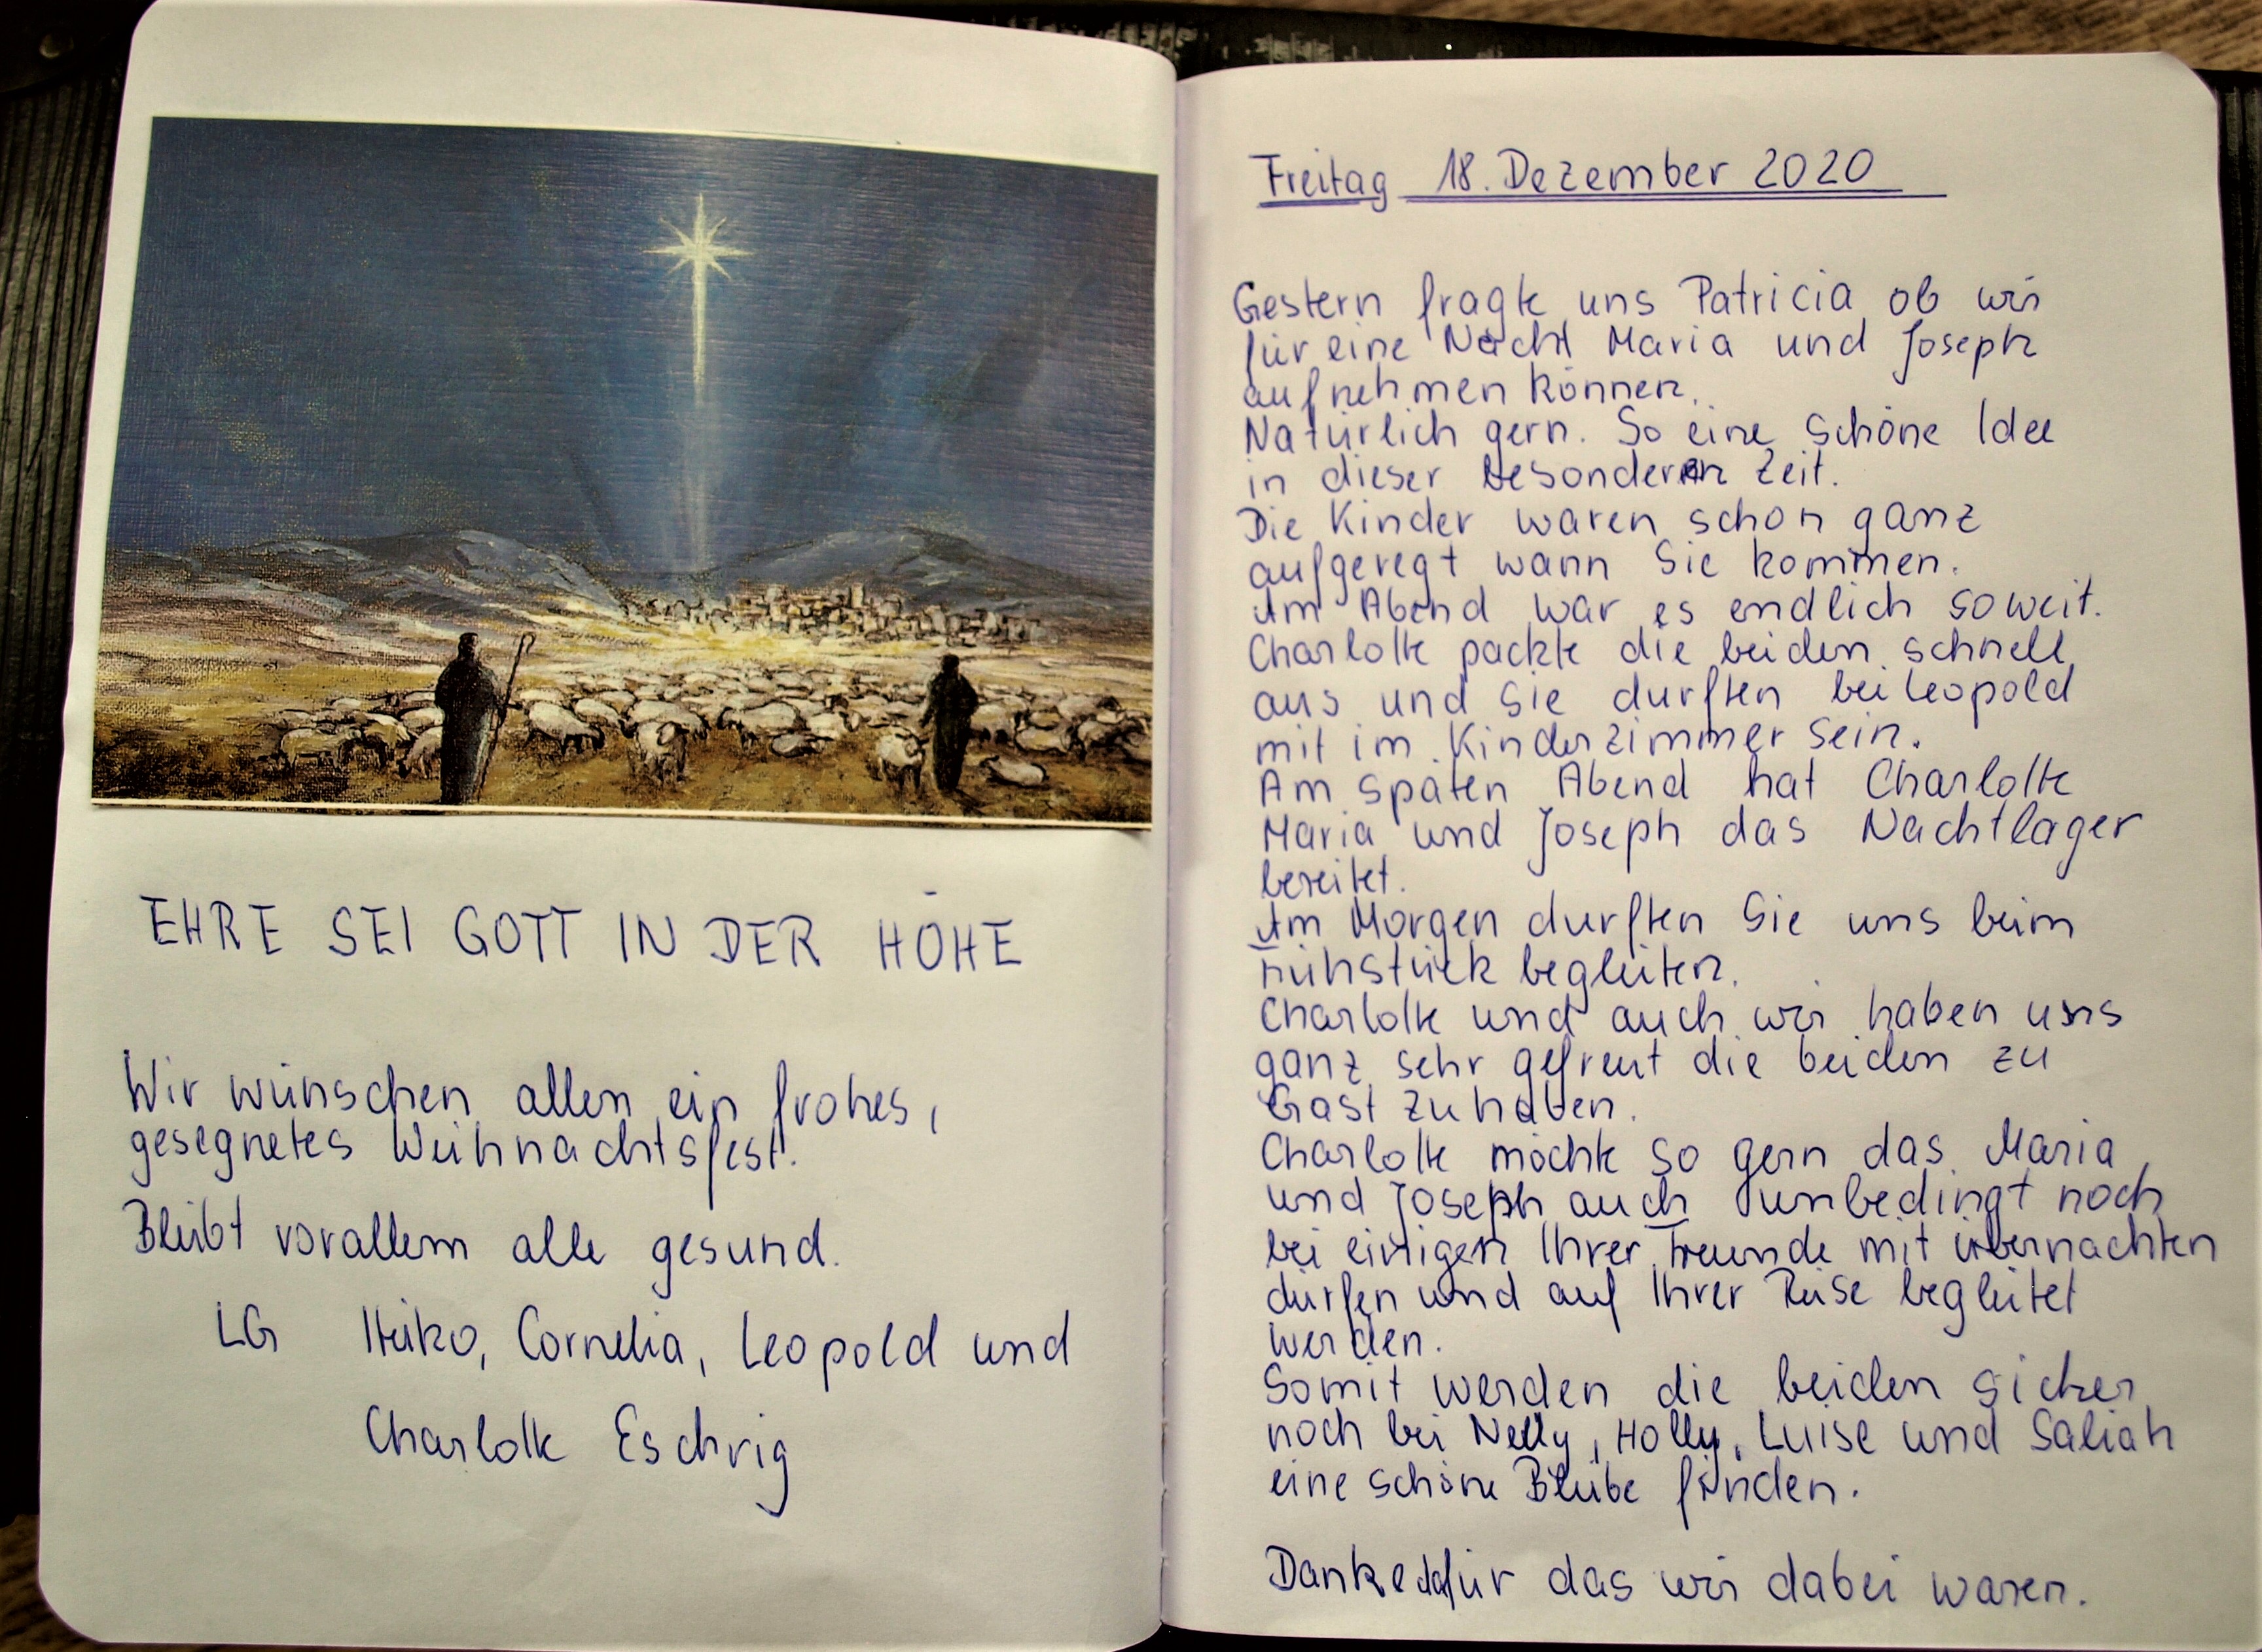 EHRE SEI GOTT IN DER HÖHE
Wir wünschen allen ein frohes,
gesegnetes Weihnachtsfest.
Bleibt vorallem alle gesund.
LG Heiko, Cornelia, Leopold und
Charlotte Eschrig
Freitag 18. Dezember 2020
Gestern fragte uns Patricia ob wir
für eine Nacht Maria und Joseph
aufnehmen können.
Natürlich gern. So eine schöne Idee
in dieser besonderen Zeit.
Die Kinder waren schon ganz
aufgeregt wann Sie kommen.
Am Abend war es endlich soweit.
Charlotte packte die beiden schnell
aus und Sie durften bei Leopold
mit im Kinderzimmer sein.
Am späten Abend hat Charlotte
Maria und Joseph das Nachtlager
bereitet.
Am Morgen durften Sie uns beim
Frühstück begleiten.
Charlotte und auch wir haben uns
ganz sehr gefreut die beiden zu
Gast zu haben.
Charlotte möchte so gern das Maria
und Joseph auch unbedingt noch
bei einigen Ihrer Freunde mit übernachten
dürfen und auf Ihrer Reise begleitet
werden.
Somit werden die beiden sicher
noch bei Nelly, Holly, Luise und Saliah
eine schöne Bleibe finden.
Danke dafür das wir dabei waren.